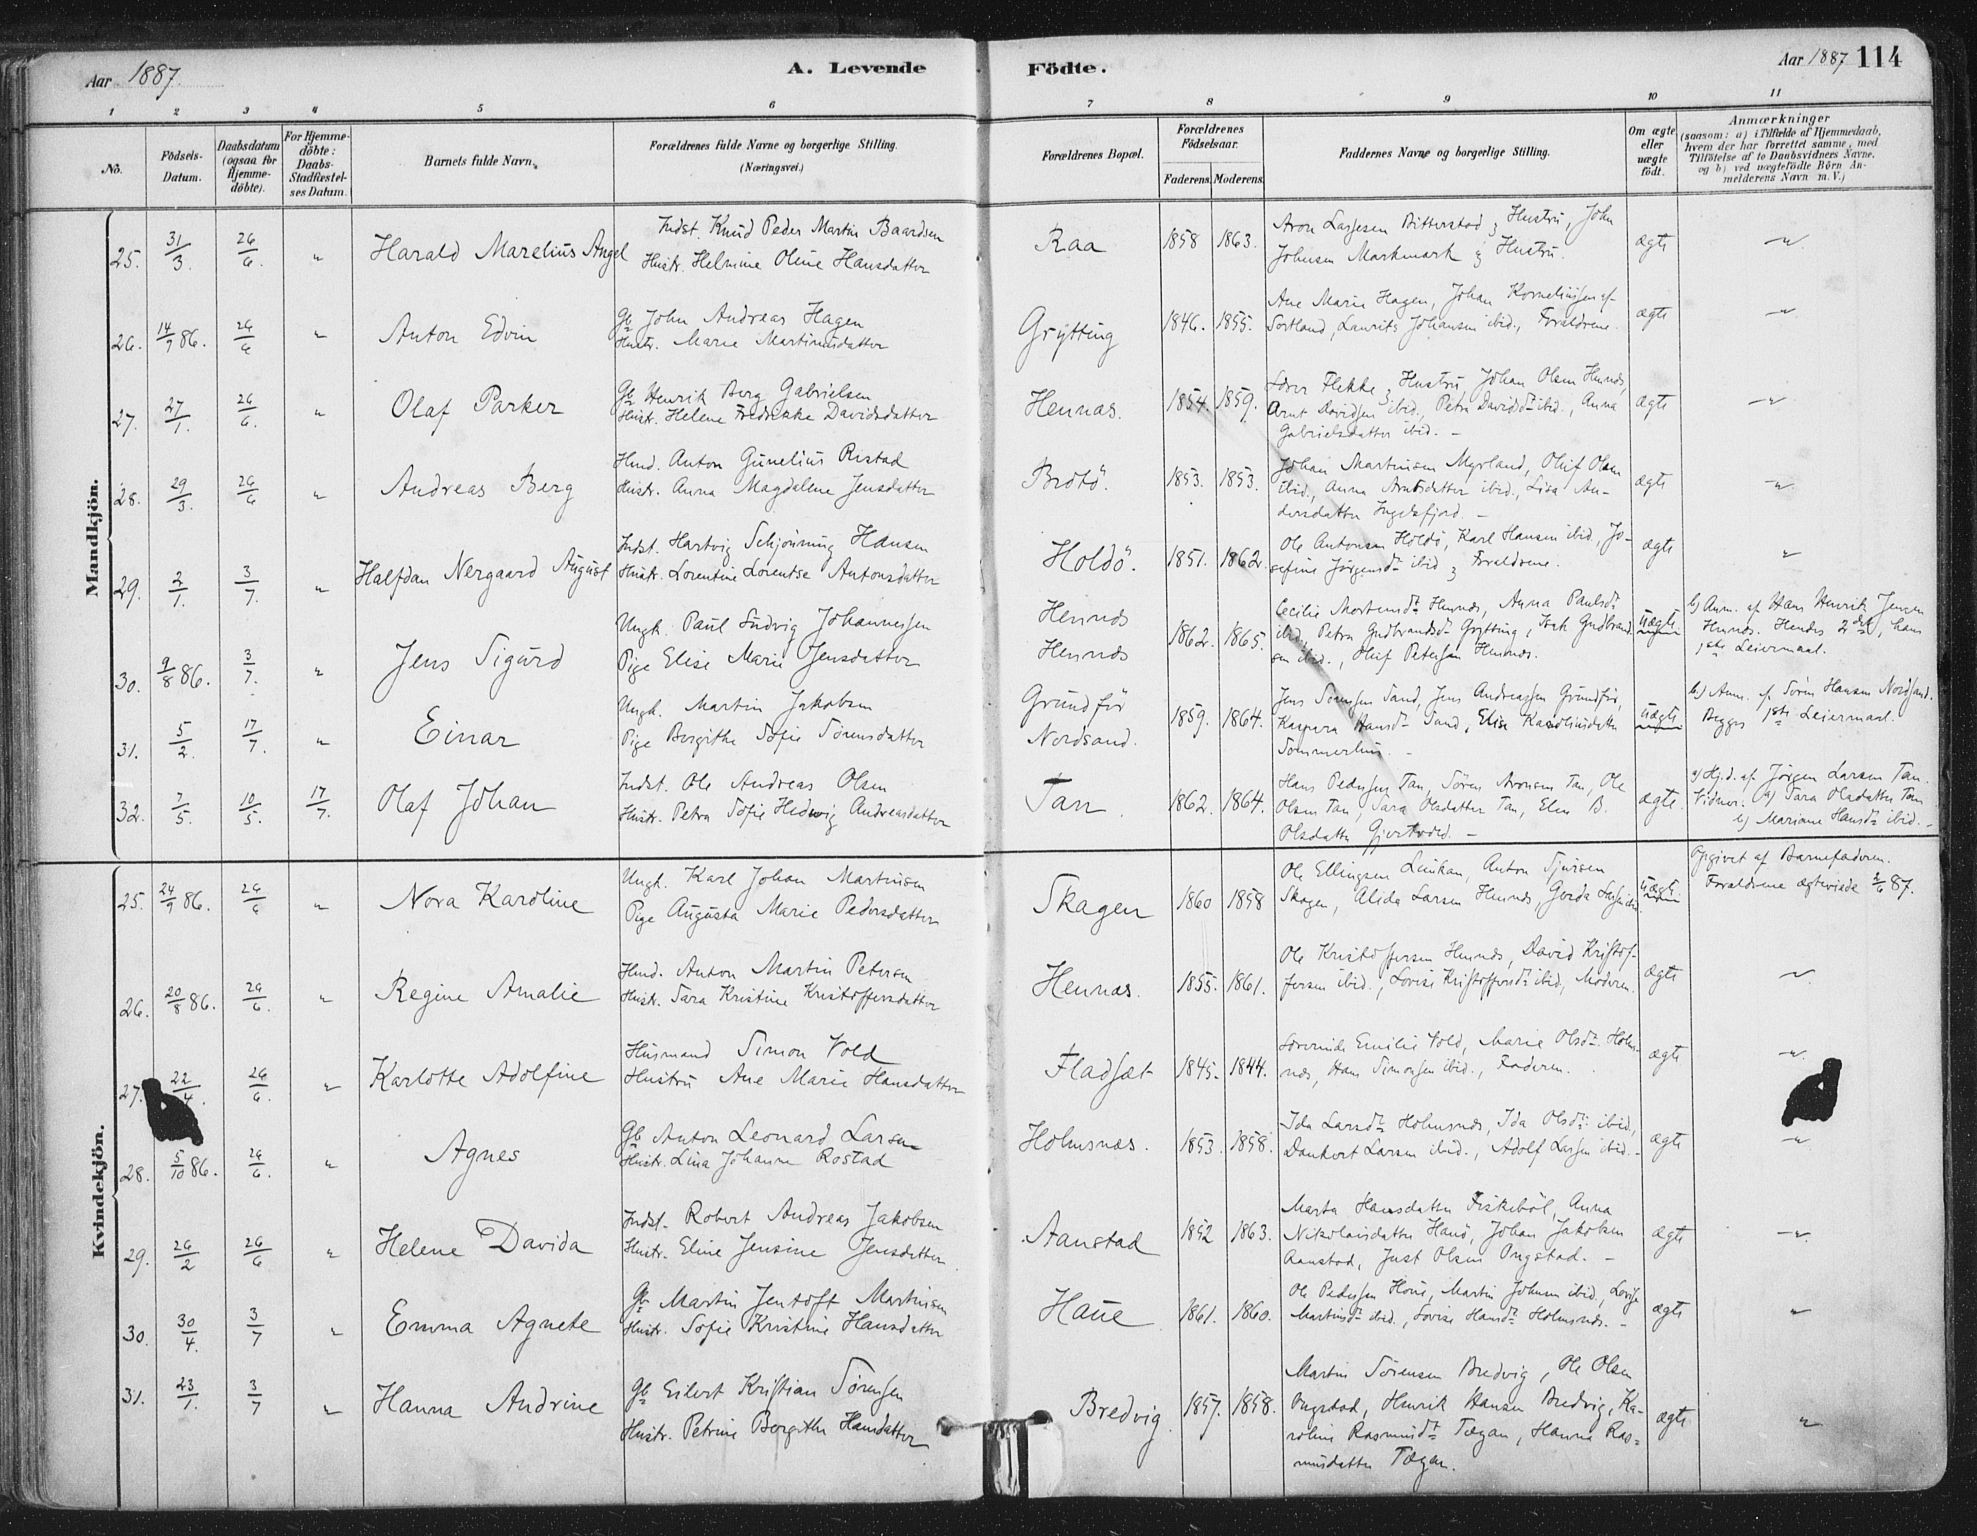 Aar 1887.
A. Levende Födte.
Aar 1887 114
1 2 3 4 5 6 7 8 9 10 11
No.
Födsels-Datum.
Daabsdatum (ogsaa for Hjemmedöbte).
For Hjemmedöbte: Daabs-Stadfæstelses Datum.
Barnets fulde Navn.
Forældrenes fulde Navne og borgerlige Stilling. (Næringsvei.)
Forældrenes Bopæl.
Forældrenes Födselsaar.
Faderens. Moderens.
Faddernes Navne og borgerlige Stilling.
Om ægte eller uægte födt.
Anmærkninger
(saasom: a) i Tilfælde af Hjemmedaab, hvem der har forrettet samme, med Tilföielse af to Daabsvidners Navne, og b) ved uægtefödte Börn Anmelderens Navn m. V.)
Mandkjön.
25. 31/3. 26/6. " Harald Marelius Angel
Indst. Knud Peder Martin Baardsen
Hustr. Helmine Oline Hansdatter
Raa 1858 1863.
Aron Lassesen Bitterstad & Hustru, John
Johnsen Markmark & Hustru.
ægte "
26. 14/7 86. 26/6 " Anton Edvin
Gb John Andreas Hagen
Hustr. Marie Martinusdatter
Grytting 1846. 1855.
Ane Marie Hagen, Johan Korneliussen af
Sortland, Laurits Johansen ibid., Forældrene.
ægte "
27. 27/1. 26/6. " Olaf Parker
Gb Henrik Berg Gabrielsen
Hustr. Helene Fredrikke Davidsdatter
Hennæs. 1854. 1859.
Flekke & Hustru, Johan Olsen Hennæs,
Arnt Davidsen ibid., Petra Davidsdtr ibid., Anna
Gabrielsdatter ibid. -
ægte "
28. 29/3. 26/6 " Andreas Berg
Hmd. Anton Gunelius Ristad
Hustr. Anna Magdalene Jensdatter
Brotö. 1853. 1853.
Johan Martinsen Myrland, Oluf Olsen
ibid., Anna Arntsdatter ibid., Lisa An-
dersdatter Ingelsfjord -
ægte "
29. 2/1. 3/7. " Halfdan Nergaard August
Indst. Hartvig Schjönning Hansen
Hustr. Lorentine Lorentse Antonsdatter
Holdö. 1851. 1862.
Ole Antonsen Holdö, Karl Hansen ibid, Jo-
sefine Jörgensdtr ibid & Forældrene.
ægte "
30. 9/8 86. 3/7. " Jens Sigurd
Ungk. Paul Ludvig Johannessen
Pige Elise Marie Jensdatter
Hennæs
Hennæs
1862. 1865.
Cecilie Mortensdtr Hennæs, Anna Paulsdtr
ibid., Petra Gudbrandsdtr Grytting, Gudbrand-
sen ibid., Oluf Petersen Hennæs.
uægte
b) Anm. af Hans Henrik Jensen
Hennæs. Hendes 2det, hans
1ste Leiermaal.
31. 5/2. 17/7. " Einar
Ungk. Martin Jakobsen
Pige Bergithe Sofie Sörensdatter
Grundför
Nordsand.
1859. 1864.
Jens Sand, Jens Andreassen Grundför,
Kaspara Hansdtr Sand, Elise Karoliusdatter
uægte
b.) Anm. af Sörin Hansen Nordsand.
Begges 1ste Leiermaal.
32. 7/5. 10/5. 17/7. Olaf Johan
Indst. Ole Andreas Olsen
Hustr. Petra Sofie Hedwig Andreasdatter
Tan 1862. 1864.
Hans Pedersen Tan, Sören Aronsen Tan, Ole
Olsen Tan, Sara Olsdatter Tan, Elen B.
Olsdatter
ægte.
a) Hj.d. af Jörgen Larsen Tan.
Vidner: a) Sara Olsdatter Tan
b) Mariane Hansdtr ibid.
Kvindekjön.
25. 24/9 86. 26/6 " Nora Karoline
Ungk. Karl Johan Martinsen
Pige Augusta Marie Pedersdatter
Skagen 1860 1858
Ole Ellingsen, Anton Sjursen
Skagen, Alida Larsen Hennæs, Gerda
uægte
Opgivet af Barnefaderen.
Forældrene ægteviede 2/6 87.
26. 20/8 86. 26/6. " Regine Amalie
Hmd. Anton Martin Petersen
Hustr. Sara Kristine Kristoffersdatter
Hennæs. 1855. 1861.
Ole Kristoffersen Hennæs, David Kristof-
fersen ibid., Lovise Kristoffersdtr ibid, Moderen.
ægte "
27. 22/4. 26/6. " Karlotte Adolfine
Husmand Simon Vold
Hustru Ane Marie Hansdatter
Fladsæt 1845. 1844.
Emilie Vold, Marie Olsdtr Holm-
næs, Hans Simonsen ibid., Faderen.
ægte "
28. 5/10 86. 26/6. " Agnes
Gb Anton Leonard Larsen
Hustr. Lina Johanna Rostad
Holmsnæs. 1853. 1858.
Ida Larsdtr Holmsnæs, Ida Olsdtr ibid,
Dankert Larsen ibid., Adolf Larsen ibid. -
ægte "
29. 26/2 26/6 " Helene Davida
Indst. Robert Andreas Jakobsen
Hustr. Eline Jensine Jensdatter.
Aanstad 1852 1863.
Marta Hansdatter Fiskeböl, Anna
Nikolaisdatter Hanö, Johan Jakobsen
Aanstad, Just Olsen Ongstad. -
ægte "
30. 30/4. 3/7 " Emma Agnete
Gb Martin Jentoft Martinsen
Hustr. Sofie Kristine Hansdatter
Haue 1861. 1860.
Ole Pedersen Haue, Martin Johnsen ibid,
Martinsdtr ibid., Lovise Hansdtr Holmsnæs. -
ægte "
31. 23/1. 3/7 " Hanna Andrine
Gb Eilert Kristian Sörensen
Hustr. Petrine Bergithe Hansdatter
Bredvig 1857. 1858.
Martin Sörensen Bredvig, Ole Olsen
Ongstad, Henrik Hansen Bredvig, Ka-
roline Rasmusdtr Tægan, Hanna Ras-
musdatter Tægan.
ægte "